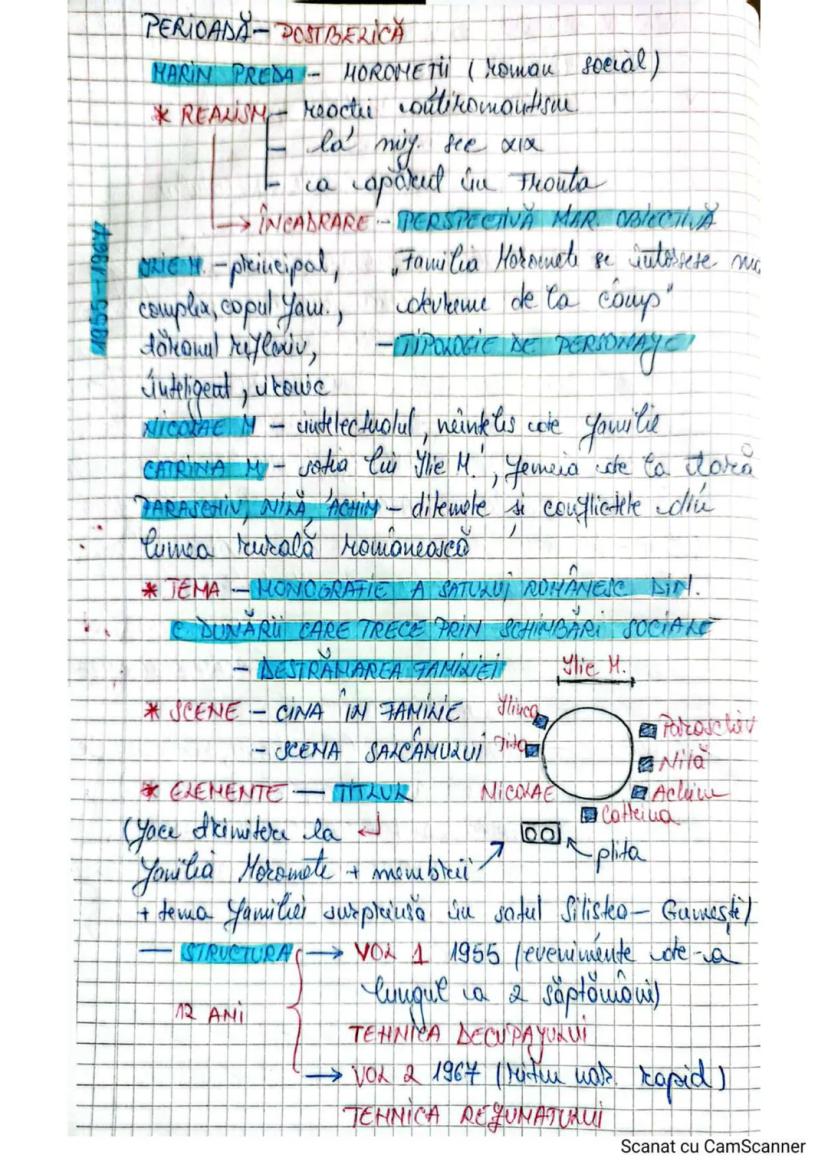 PERIOADĂ - POSTBELICĂ
MARIN PREDA - MOROMEȚII (roman social)
* REALISM - reacție antiromantism
- la mij. sec XIX
- a apărut în Franța
→ ÎNCADRARE - PERSPECTIVĂ NAR OBIECTIVĂ
1955-1967
ILIE M. - principal,
complex, capul fam.,
țăranul reflexiv,
inteligent, ironic
„Familia Moromete se întorsese mai
devreme de la câmp"
- TIPOLOGIE DE PERSONAJE
NICOLAE M - intelectualul, neînțeles de familie
CATRINA M - soția lui Ilie M., femeia de la țară
PARASCHIV, NILĂ, ACHIM - dilemele și conflictele din
lumea rurală românească
* TEMA - MONOGRAFIE A SATULUI ROMÂNESC DIN
C. DUNĂRII CARE TRECE PRIN SCHIMBĂRI SOCIALE
- DESTRĂMAREA FAMILIEI
* SCENE - CINA ÎN FAMILIE
- SCENA SALCÂMULUI
Ilie M.
Ilinca
Tita
NICOLAE
Paraschiv
Nilă
Achim
Catrina
plita
* ELEMENTE - TITLUL
(face trimitere la
familia Moromete + membrii
+ tema familiei surprinsă în satul Siliștea-Gumești)
- STRUCTURA → VOL 1 1955 (evenimente de-a
lungul a 2 săptămâni)
12 ANI
TEHNICA DECUPAJULUI
→ VOL 2 1967 (ritm nar. rapid)
TEHNICA REZUMATULUI
Scanat cu CamScanner